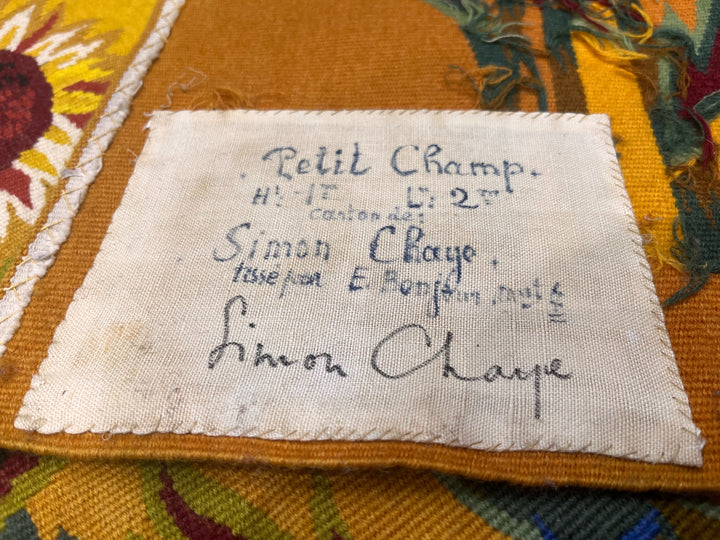 . Petit Champ.
Ht: 1m Lr: 2m
carton de:
Simon Chaye.
tissé par E. Bonjour,
Simon Chaye